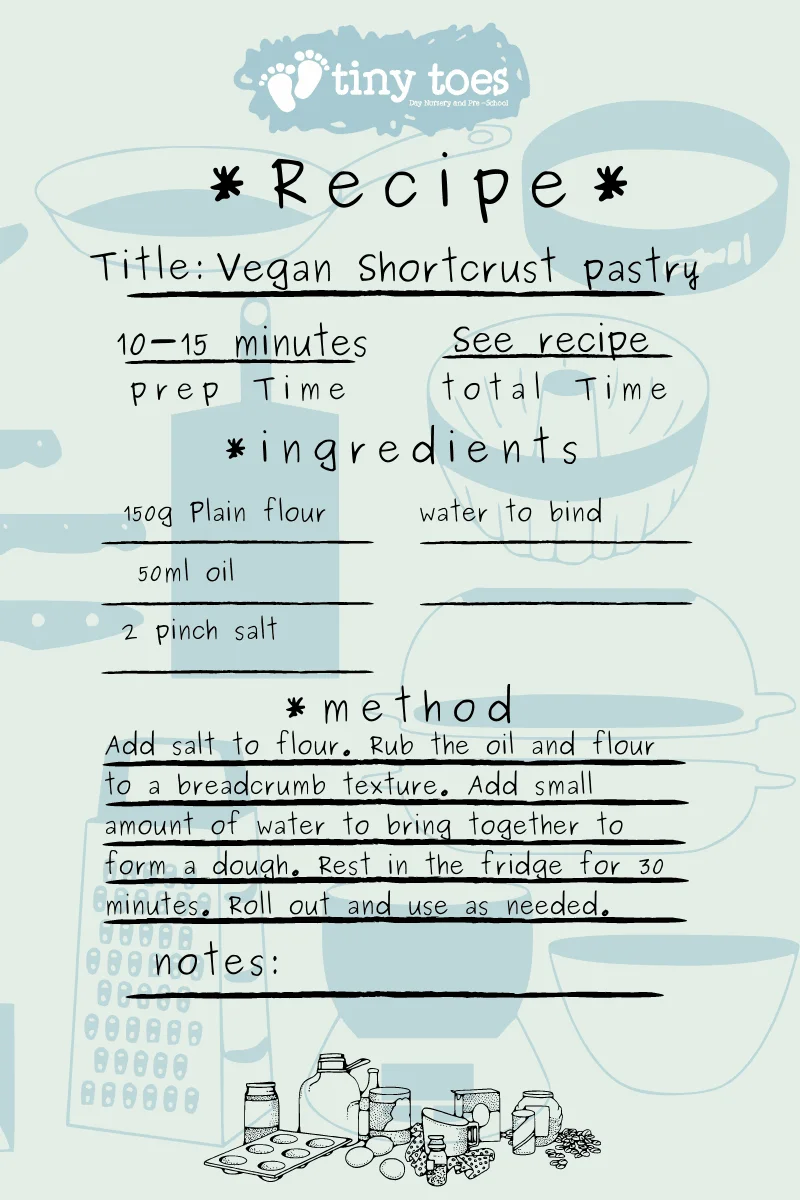 tiny toes
Day Nursery and Pre-School
*Recipe*
Title: Vegan Shortcrust pastry
10-15 minutes
See recipe
prep Time
total Time
*ingredients
150g Plain flour
water to bind
50ml oil
2 pinch salt
*method
Add salt to flour. Rub the oil and flour
to a breadcrumb texture. Add small
amount of water to bring together to
form a dough. Rest in the fridge for 30
minutes. Roll out and use as needed.
notes: